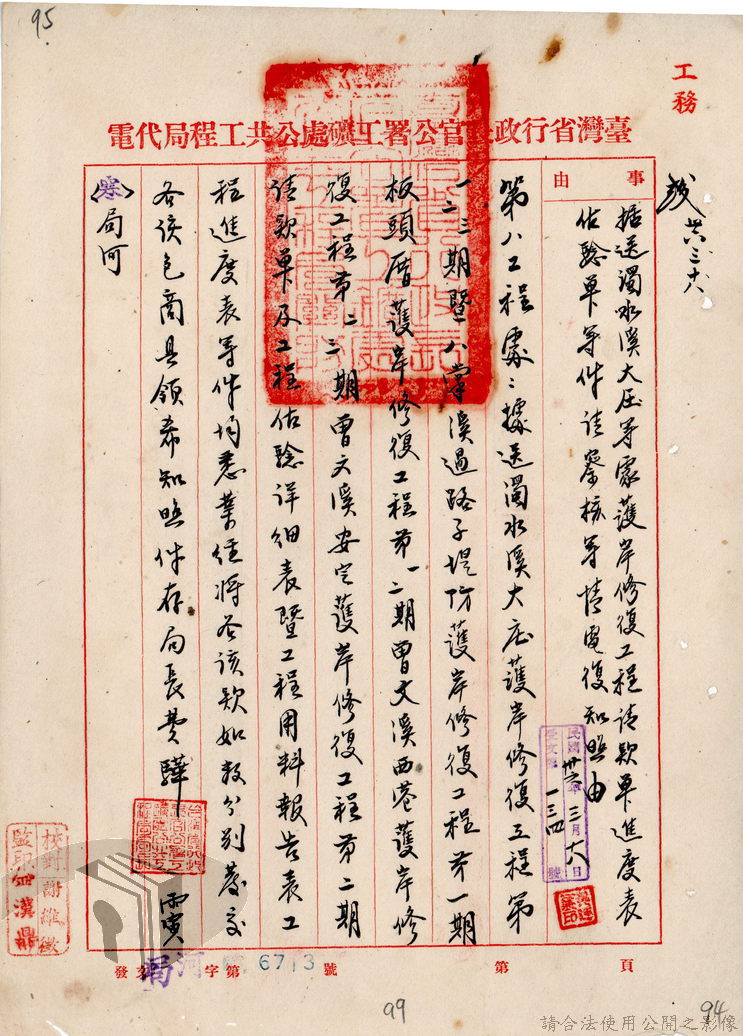 95
工務
臺灣省行政長官公署工礦處公共工程局代電
卅六 三 十八
事由
據送濁水溪大庄等處護岸修復工程請款單進度表
估驗單等件請鑒核等情電復知照由
民國卅六年三月十八日
受文號一三四號
第八工程處:據送濁水溪大庄護岸修復工程第
一二三期暨八掌溪過路子堤防護岸修復工程第一期
板頭厝護岸修復工程第一二期曾文溪西港護岸修
復工程第二三期曾文溪安定護岸修復工程第二期
請款單及工程估驗詳細表暨工程用料報告表工
程進度表等件均悉業經將各該款如數分別發交
各該包商具領希知照件存局長費驊
寅
(寒)局河
校對 謝維徵
監印 漢鼎
發文局河字第6713號
第 頁
99
94
請合法使用公開之影像